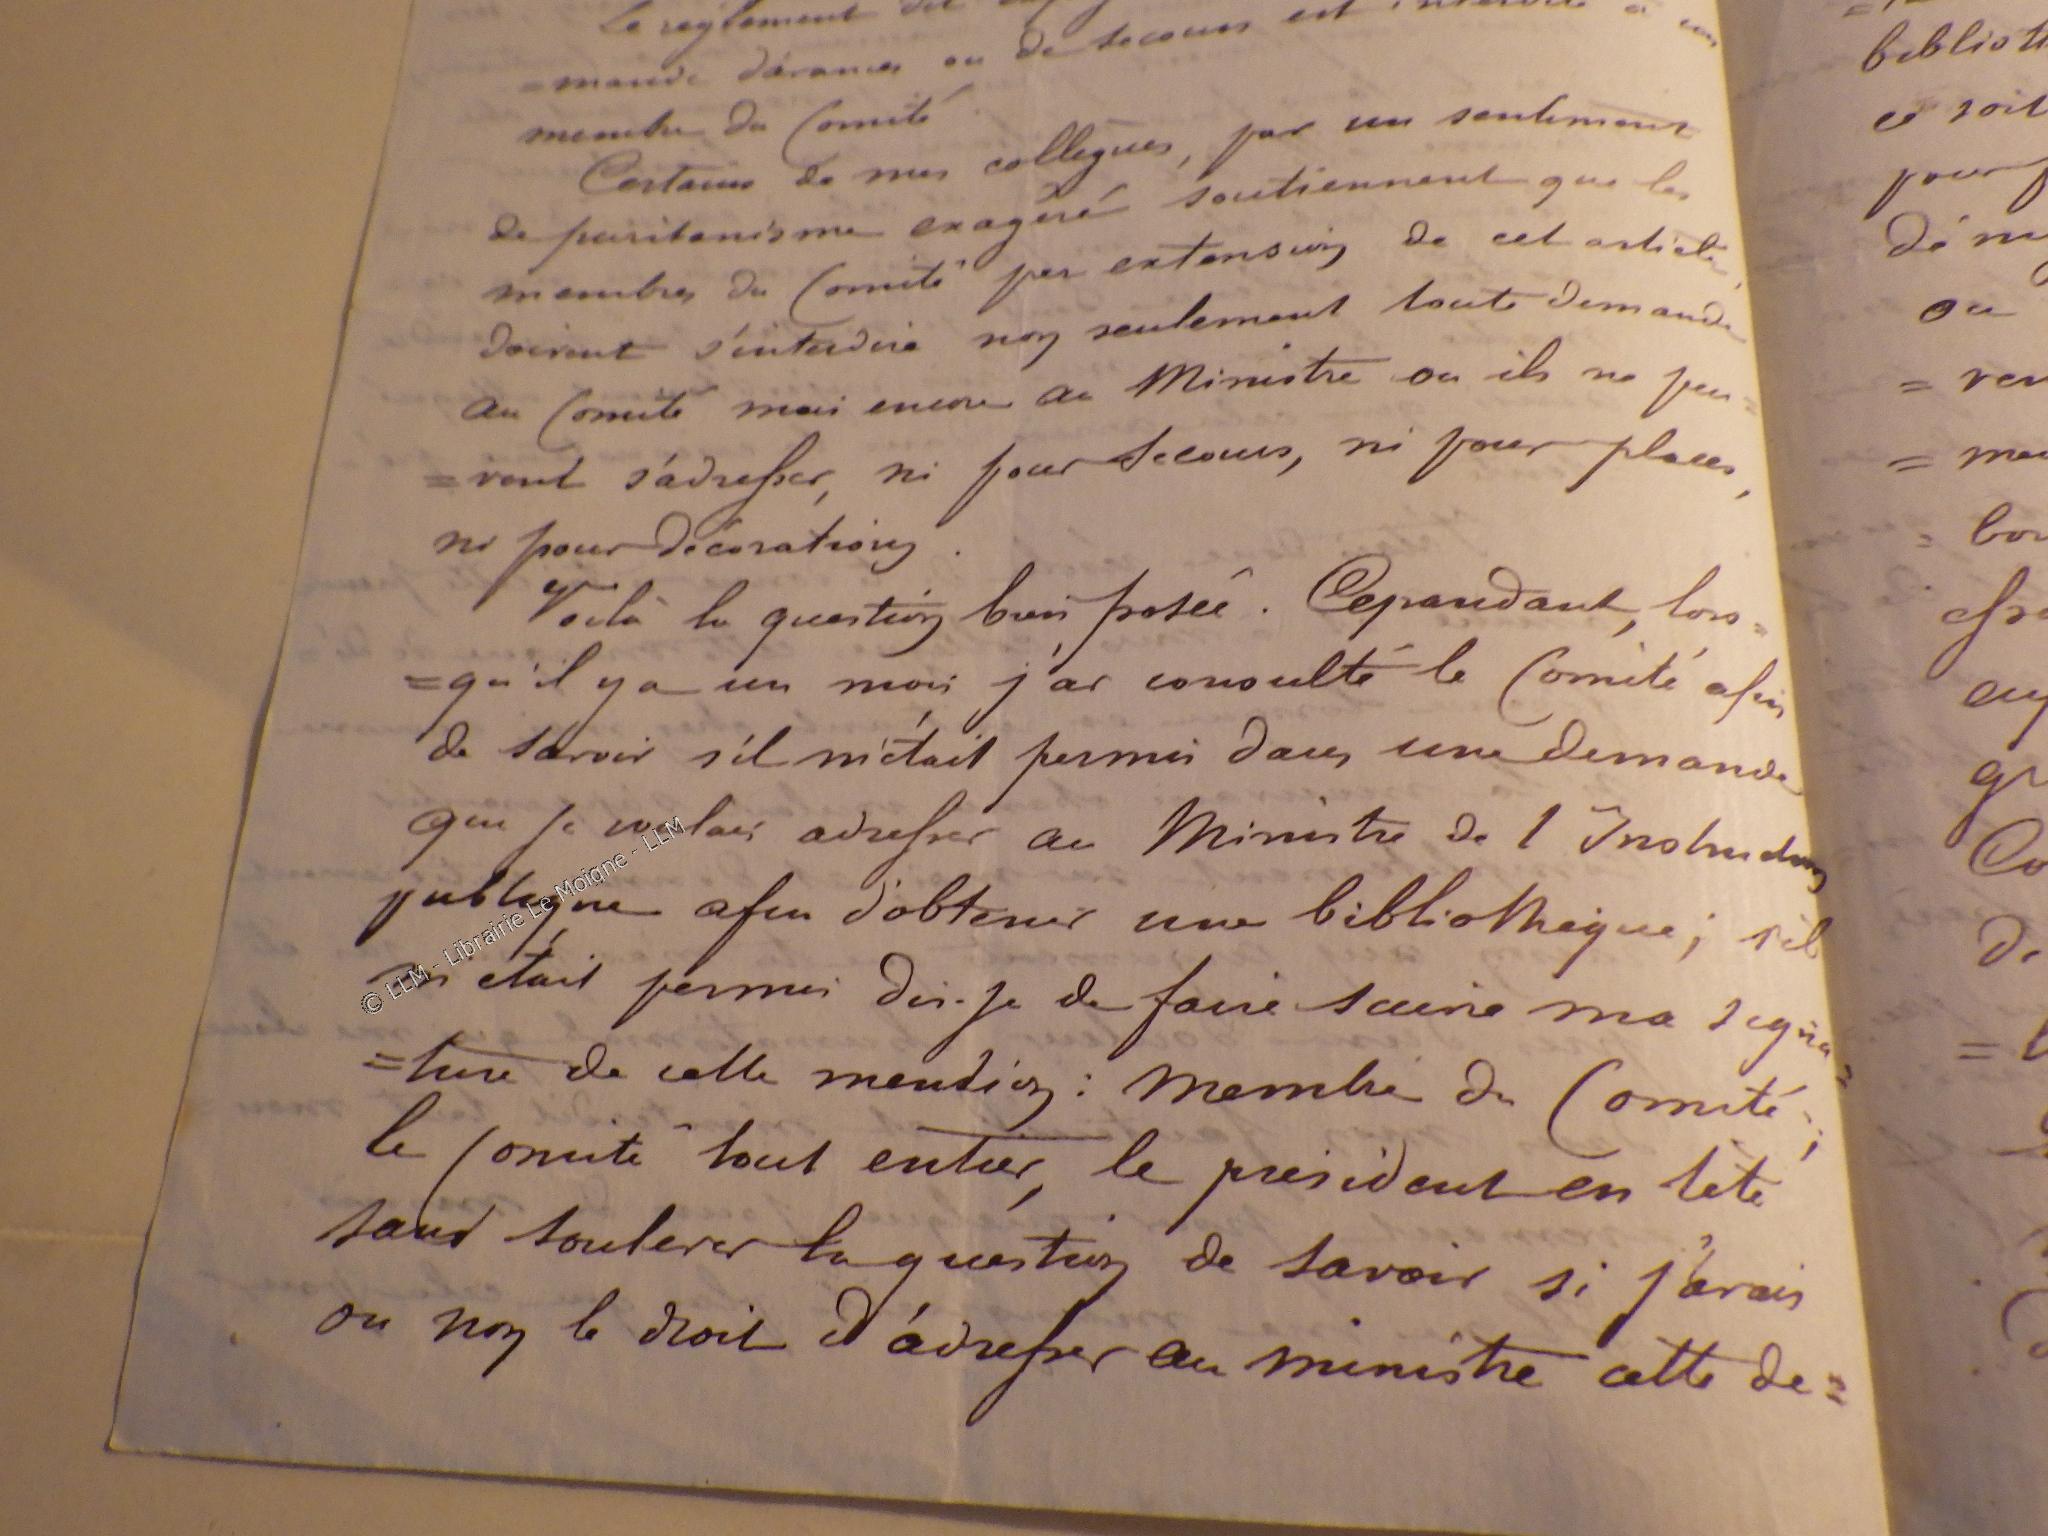 Le règlement dit
=mande d'avances ou de secours est interdite à un
membre du Comité.
Certains de mes collègues, par un sentiment
de puritanisme exagéré soutiennent que les
membres du Comité par extension de cet article,
doivent s'interdire non seulement toute demande
au Comité mais encore au Ministre ou ils ne peu=
=vent s'adresser, ni pour secours, ni pour places,
ni pour décorations.
Voilà la question bien posée. Cependant, lors=
=qu'il y a un mois j'ai consulté le Comité afin
de savoir s'il m'était permis dans une demande
que je voulais adresser au Ministre de l'Instruction
publique afin d'obtenir une bibliothèque; s'il
m'était permis dis-je de faire suivre ma signa=
=ture de cette mention: Membre du Comité;
le Comité tout entier, le président en tête
sans soulever la question de savoir si j'avais
ou non le droit d'adresser au ministre cette de=
biblioth
ce soit
pour
ou
= ven
=
= bon
Co
De
© LLM - Librairie Le Moigne - LLM